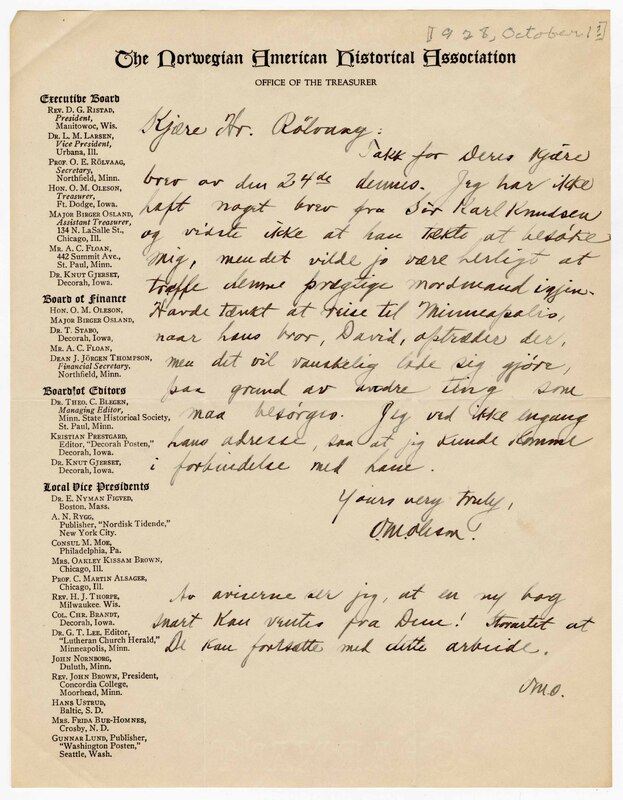 [1928, October 1?]
The Norwegian American Historical Association
OFFICE OF THE TREASURER
Executive Board
REV. D. G. RISTAD,
President,
Manitowoc, Wis.
DR. L. M. LARSEN,
Vice President,
Urbana, Ill.
PROF. O. E. RÖLVAAG,
Secretary,
Northfield, Minn.
HON. O. M. OLESON,
Treasurer,
Ft. Dodge, Iowa.
MAJOR BIRGER OSLAND,
Assistant Treasurer,
134 N. LaSalle St.,
Chicago, Ill.
MR. A. C. FLOAN,
442 Summit Ave.,
St. Paul, Minn.
DR. KNUT GJERSET,
Decorah, Iowa.
Board of Finance
HON. O. M. OLESON,
MAJOR BIRGER OSLAND,
DR. T. STABO,
Decorah, Iowa.
MR. A. C. FLOAN,
DEAN J. JÖRGEN THOMPSON,
Financial Secretary,
Northfield, Minn.
Board of Editors
DR. THEO. C. BLEGEN,
Managing Editor,
Minn. State Historical Society,
St. Paul, Minn.
KRISTIAN PRESTGARD,
Editor, "Decorah Posten,"
Decorah, Iowa.
DR. KNUT GJERSET,
Decorah, Iowa.
Local Vice Presidents
DR. E. NYMAN FIGVED,
Boston, Mass.
A. N. RYGG,
Publisher, "Nordisk Tidende,"
New York City.
CONSUL M. MOE,
Philadelphia, Pa.
MRS. OAKLEY KISSAM BROWN,
Chicago, Ill.
PROF. C. MARTIN ALSAGER,
Chicago, Ill.
REV. H. J. THORPE,
Milwaukee. Wis.
COL. CHR. BRANDT,
Decorah, Iowa.
DR. G. T. LEE, Editor,
"Lutheran Church Herald,"
Minneapolis, Minn.
JOHN NORNBORG,
Duluth, Minn.
REV. JOHN BROWN, President,
Concordia College,
Moorhead, Minn.
HANS USTRUD,
Baltic, S. D.
MRS. FRIDA BUE-HOMNES,
Crosby, N. D.
GUNNAR LUND, Publisher,
"Washington Posten,"
Seattle, Wash.
Kjære Hr. Rölvaag:
Takk for Deres kjære
brev av den 24de dennes. Jeg har ikke
haft noget brev fra Karl Knudsen
og vidste ikke at han tækte at besöke
mig, men det vilde jo være herligt at
træffe denne prægtige nordmand igjen.
Havde tænkt at reise til Minneapolis,
naar hans bror, David, optræder der,
men det vil vanskelig lade sig gjöre,
paa grund av andre ting som
maa besörges. Jeg ved ikke engang
hans adresse, saa at jeg kunde komme
i forbindelse med ham.
Yours very truly,
OMOleson.
Av aviserne ser jeg, at en ny bog
snart kan ventes fra Dem! at
De kan fortsætte med dette arbeide.
OMO.